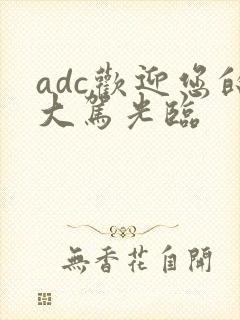 adc歡迎您的
大駕光臨
無香花自開